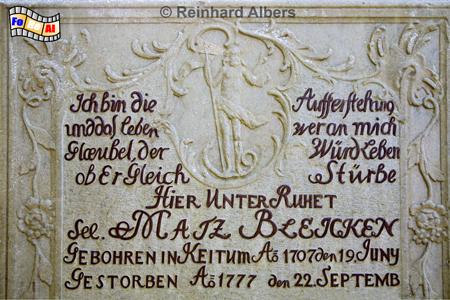 © Reinhard Albers
Fo To Al
Ich bin die Aufferstehung
und das Leben wer an mich
Glæubet, der Würd Leben
ob Er Gleich Stürbe
HIER UNTER RUHET
Sel. MATZ BLEICKEN
GEBOHREN IN KEITUM Aō 1707 den 19. JUNY
GESTORBEN Aō 1777 den 22. SEPTEMB